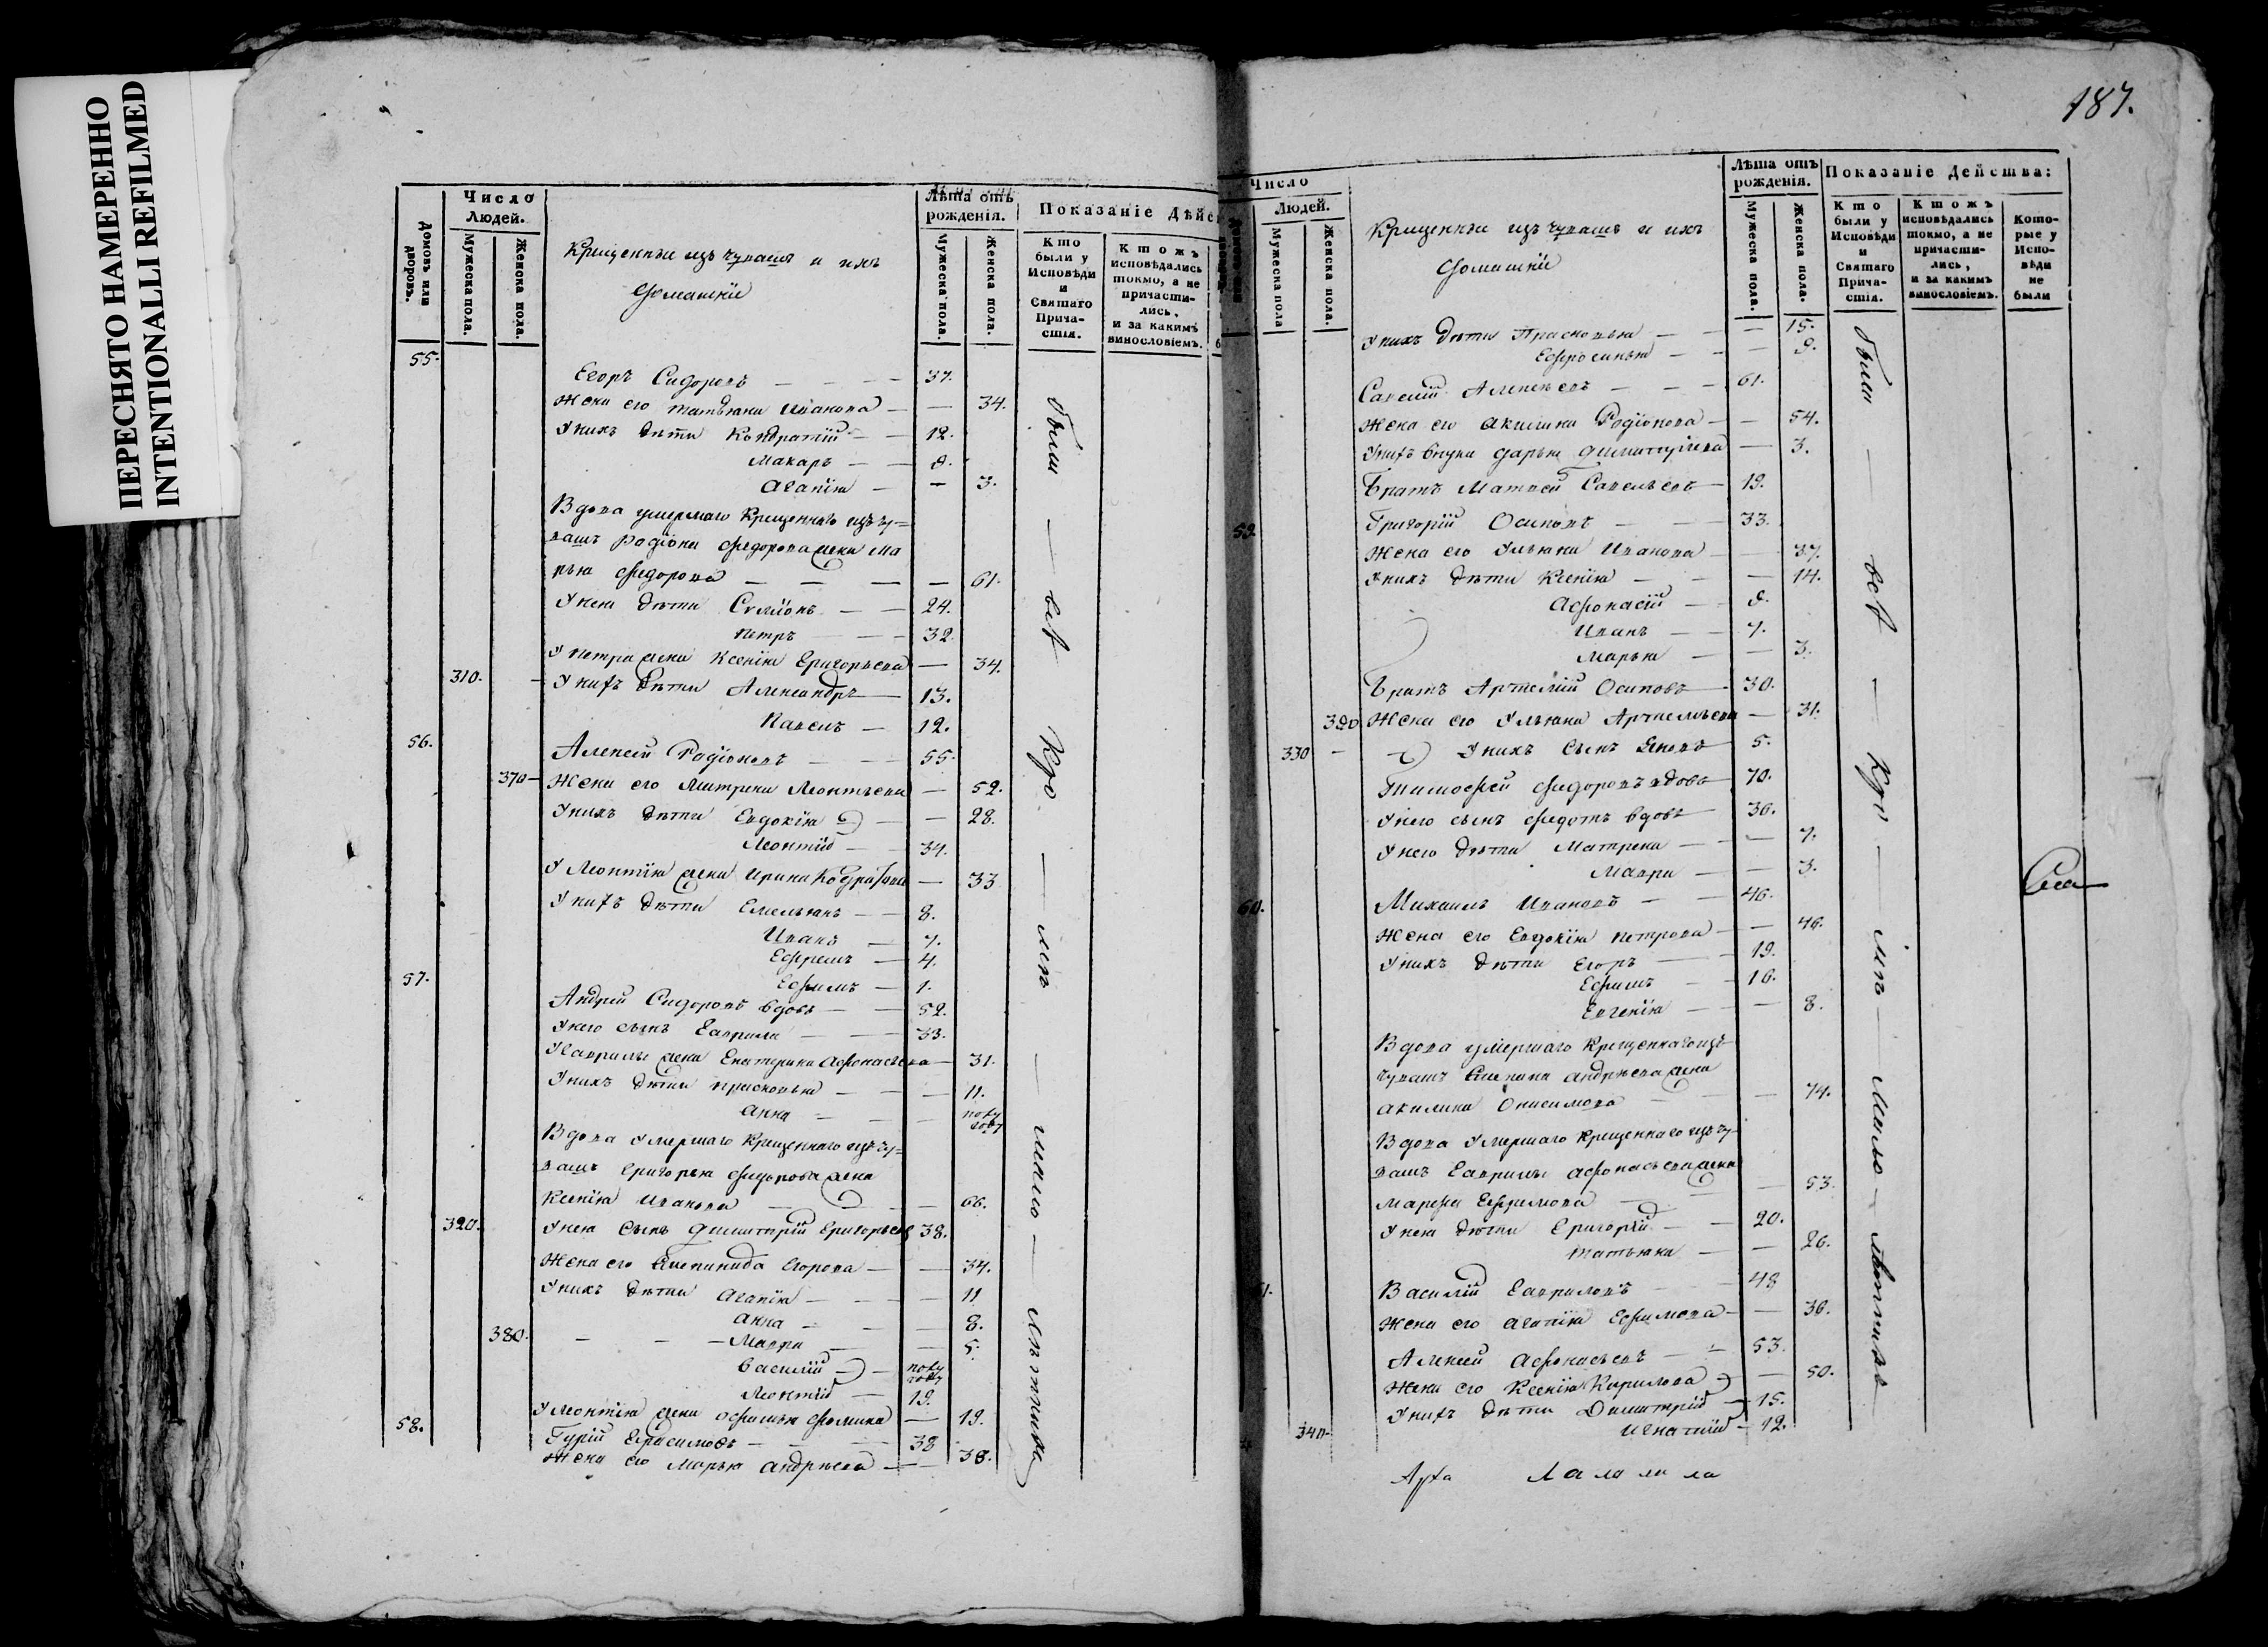 ПЕРЕСНЯТО НАМЕРЕННО
INTENTIONALLI REFILMED
Домовъ или дворовъ.
Число Людей.
Мужеска пола.
Женска пола.
Крещенныи изъ чувашъ и ихъ
домашніи
Лѣта отъ рожденія.
Мужеска пола.
Женска пола.
Показаніе Дѣйс
Кто были у Исповѣди и Святаго Причастія.
Ктожъ исповѣдались токмо, а не причастились, и за какимъ винословіемъ.
55.
Егоръ Сидоровъ — 37.
Жена его Татьяна Иванова — 34.
У нихъ дѣти Кондратій — 12.
Макаръ — 9.
Агапія — 3.
Вдова умершаго крещеннаго изъ чу=
вашъ Родіона Федорова жена Ма
рья Федорова — 61.
У нея дѣти Семіонъ — 24.
Петръ — 32.
У Петра жена Ксенія Григорьева — 34.
310. У нихъ дѣти Александръ — 13.
Павелъ — 12.
56.
Алексей Родіоновъ — 55.
370 — Жена его Матрена Леонтьева — 52.
У нихъ дѣти Евдокія — 28.
Леонтій — 34.
У Леонтія жена Ирина — 33
У нихъ дѣти Емельянъ — 8.
Иванъ — 7.
Ефремъ — 4.
57.
Ефимъ — 1.
Андрей Сидоровъ вдовъ — 52.
У него сынъ Гаврила — 33.
У Гаврилы жена Екатерина Афонасьева — 31.
У нихъ дѣти Прасковья — 11.
Анна — полу году
Вдова умершаго крещеннаго изъ чу=
вашъ Григорья Федорова жена
Ксенія Иванова — 66.
320. У нея сынъ Димитрій Григорьевъ 38.
Жена его Степанида Егорова — 34.
У нихъ дѣти Агапія — 11
Анна — 8.
380. — Мавра — 5.
Василій — полу году
Леонтій — 19.
У Леонтія жена Офимья Фомина — 19.
58.
Гурій Герасимовъ — 38
Жена его Марья Андреева — 38.
были — всѣ
187.
Число
Людей.
Мужеска пола
Женска пола.
Крещенныи изъ чувашъ и ихъ
домашніи
Лѣта отъ рожденія.
Мужеска пола.
Женска пола.
Показаніе Действа:
Кто были у Исповѣди и Святаго Причастія.
Ктожъ исповѣдались токмо, а не причастились, и за какимъ винословіемъ.
Которые у Исповѣди не были
У нихъ дѣти Прасковья — 15.
Ефросинья — 9.
Савелій Алексеевъ — 61.
Жена его Акилина Родіонова — 54.
У нихъ внука Дарья Димитріева — 3.
Братъ Матвей Савельевъ — 19.
59.
Григорій Осиповъ — 33.
Жена его Ульяна Иванова — 37.
У нихъ дѣти Ксенія — 14.
Афонасій — 9.
Иванъ — 7.
Марья — 3.
Братъ Артемій Осиповъ — 30.
390 Жена его Ульяна Артемьева — 31.
330 — У нихъ сынъ Яковъ 5.
Тимофей Федоровъ вдовъ 70.
У него сынъ Федотъ вдовъ 36.
У него дѣти Матрена — 7.
Мавра — 3.
60.
Михаилъ Ивановъ — 46.
Жена его Евдокія Петрова — 46.
У нихъ дѣти Егоръ — 19.
Ефимъ — 16.
Евгенія — 8.
Вдова умершаго крещеннаго изъ
чувашъ Степана Андреева жена
Акилина Онисимова — 74.
Вдова умершаго крещеннаго изъ чу
вашъ Гаврилы Афонасьева жена
Марфа Ефимова — 53.
У нея дѣти Григорій — 20.
Татьяна — 26.
Василій Гавриловъ 48
Жена его Агапія Ефимова — 36.
Алексей Афонасьевъ — 53.
Жена его Ксенія Кирилова — 50.
У нихъ дѣти Димитрій — 15.
340 — Игнатій — 12.
были — всѣ